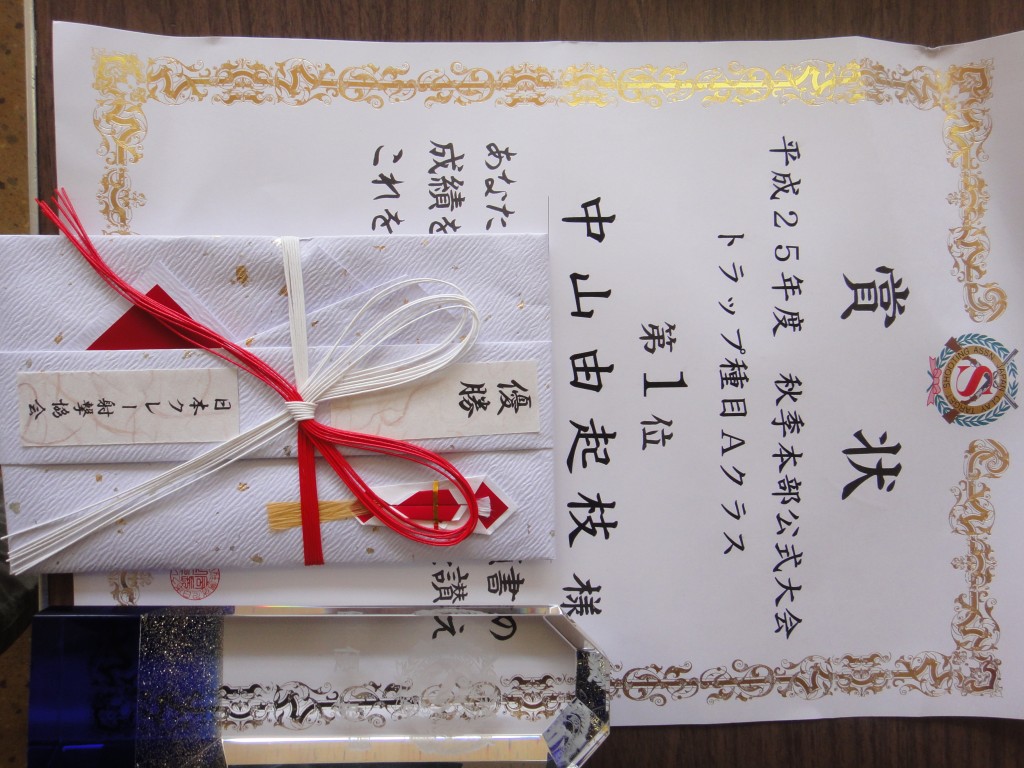 賞状
平成25年度 秋季本部公式大会
トラップ種目Aクラス
第1位
中山由起枝様
あなた
書の
成績を
讃え
これを
優勝
日本クレー射撃協会